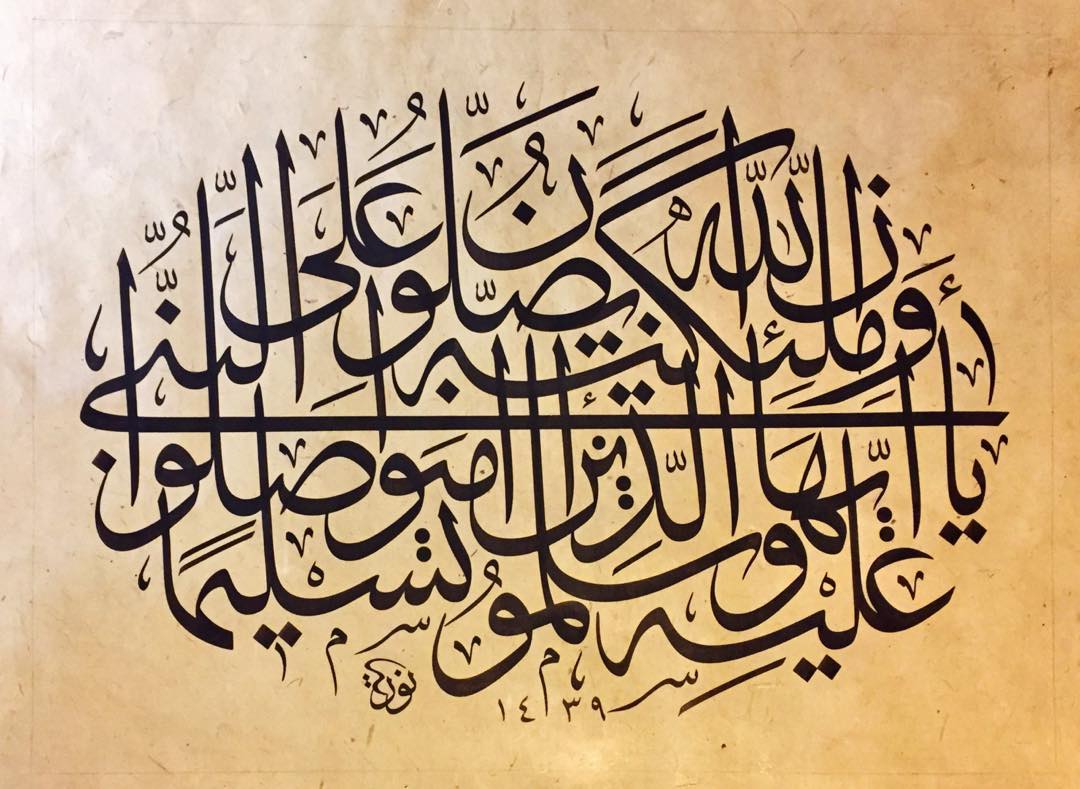 إن الله وملئكته يصلون على النبي
يا أيها الذين آمنوا صلوا
عليه وسلموا تسليما
نورية
١٤٣٩